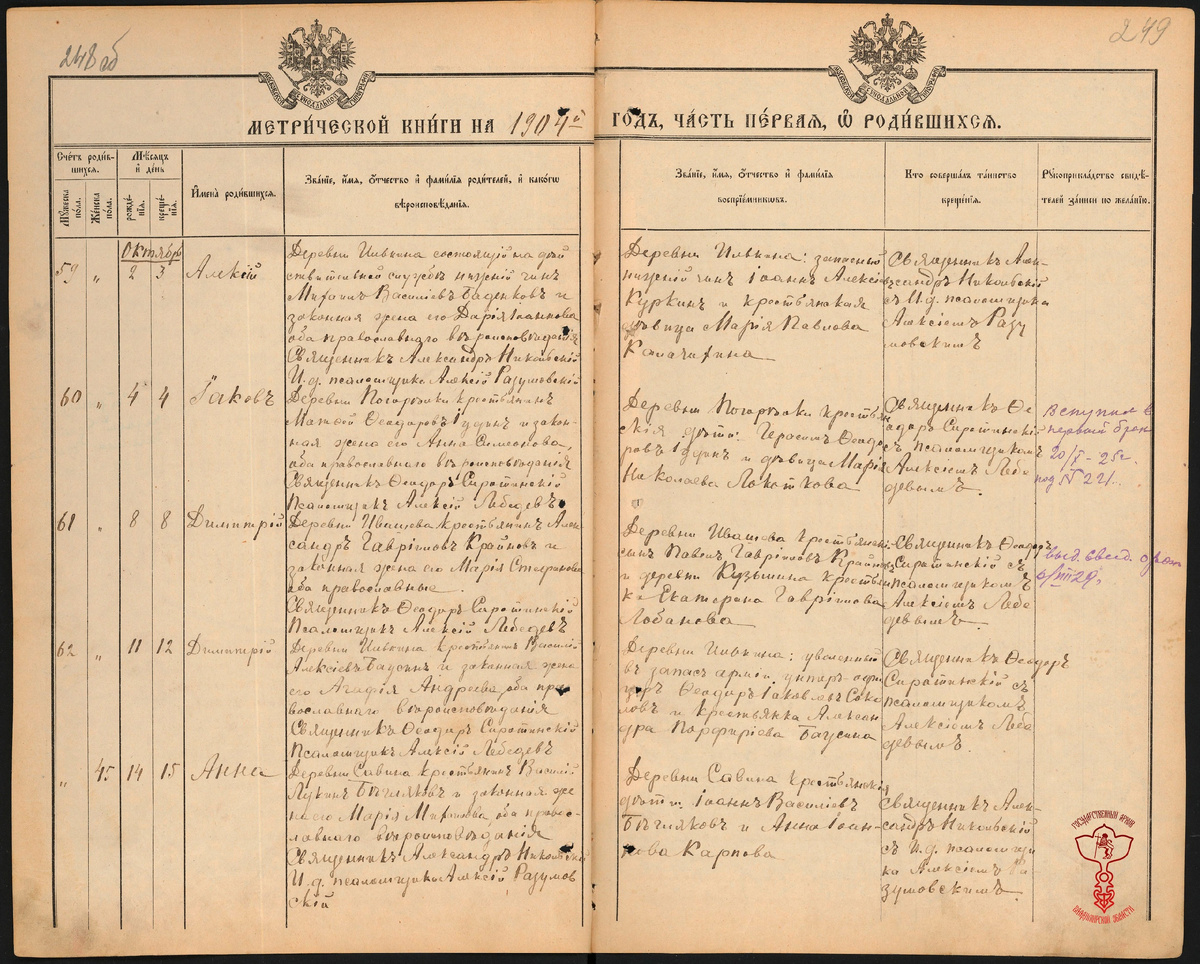 248 об
249
МЕТРИ́ЧЕСКОЙ КНИ́ГИ НА 1904й
ГОДЪ, ЧА́СТЬ ПЕ́РВАЯ, Ѿ РОДИ́ВШИХСѦ.
Счётъ роди́вшихся.
Мѣ́сяцъ и҆ де́нь
И҆мена̀ роди́вшихся.
Зва́нїе, и҆́мя, о҆́тчество и҆ фами́лїя роди́телей, и҆ како́гѡ
вѣроисповѣ́данїя.
Мꙋ́жеска по́ла.
Же́нска по́ла.
рожде́нїя.
креще́нїя.
Зва́нїе, и҆́мя, о҆́тчество и҆ фами́лїя
воспрїе́мникѡвъ.
Кто̀ соверша́лъ та́инство
креще́нїя.
Рꙋкоприкла́дство свидѣ́-
телей за́писи по жела́нїю.
Октябрь
59 " 2 3 Алексій
Деревни Ивкина состоящій на дѣй
ствительной службѣ низшій чинъ
Михаилъ Василіевъ Баденковъ и
законная жена его Дарія Іоаннова
оба православнаго вѣроисповѣданія
Священникъ Александръ Никольскій
И.д. псаломщика Алексій Разумовскій
Деревни Ивкина: запасный
низшій чинъ Іоаннъ Алексіевъ
Куркинъ и крестьянская
дѣвица Марія Павлова
Калачихина
Священникъ Алек-
сандръ Никольскій
съ И.д. псаломщика
Алексіемъ Разу
мовскимъ
60 " 4 4 Іаковъ
Деревни Погорѣлки крестьянинъ
Матвѣй Ѳеодоровъ Гудинъ и закон-
ная жена его Анна Симеонова,
оба православнаго вѣроисповѣданія
Священникъ Ѳеодоръ Сиротинскій
Псаломщикъ Алексій Лебедевъ
Деревни Погорѣлки крестьян
скія дѣти: Герасимъ Ѳеодо-
ровъ Гудинъ и дѣвица Марія
Николаева Локоткова
Священникъ Ѳе-
одоръ Сиротинскій
съ псаломщикомъ
Алексіемъ Лебе
девымъ.
Вступил в
первый брак
20/I - 25г.
под № 221.
61 " 8 8 Димитрій
Деревни Ивашева крестьянинъ Алек
сандръ Гавріиловъ Крайновъ и
законная жена его Марія Стефанова
оба православные.
Священникъ Ѳеодоръ Сиротинскій
Псаломщикъ Алексій Лебедевъ
Деревни Ивашева крестьянскі
сынъ Павелъ Гавріиловъ Крайновъ
и деревни Кузьмина крестьян
ка Екатерина Гавріилова
Лобанова
Священникъ Ѳеодоръ
Сиротинскій съ
псаломщикомъ
Алексіемъ Лебе
девымъ.
выд. свид. о рож
62 " 11 12 Димитрій
Деревни Ивкина крестьянинъ Василій
Алексіевъ Баусинъ и законная жена
его Агафія Андреева, оба пра
вославнаго вѣроисповѣданія
Священникъ Ѳеодоръ Сиротинскій
Псаломщикъ Алексій Лебедевъ
Деревни Ивкина: уволенный
въ запасъ арміи унтеръ-офи
церъ Ѳеодоръ Іаковлевъ Соко
ловъ и крестьянка Алексан
дра Порфиріева Баусина
Священникъ Ѳеодоръ
Сиротинскій съ
псаломщикомъ
Алексіемъ Лебе
девымъ.
" 45 14 15 Анна
Деревни Савина крестьянинъ Василій
Лукинъ Бѣгляковъ и законная же
на его Марія Михаилова, оба право-
славнаго вѣроисповѣданія
Священникъ Александръ Никольскій
И.д. псаломщика Алексій Разумов
скій
Деревни Савина крестьянскія
дѣти: Іоаннъ Василіевъ
Бѣгляковъ и Анна Іоан-
нова Карпова
Священникъ Алек-
сандръ Никольскій
съ И.д. псаломщи
ка Алексіемъ Ра
зумовскимъ.
ГОСУДАРСТВЕННЫЙ АРХИВ
ВЛАДИМИРСКОЙ ОБЛАСТИ